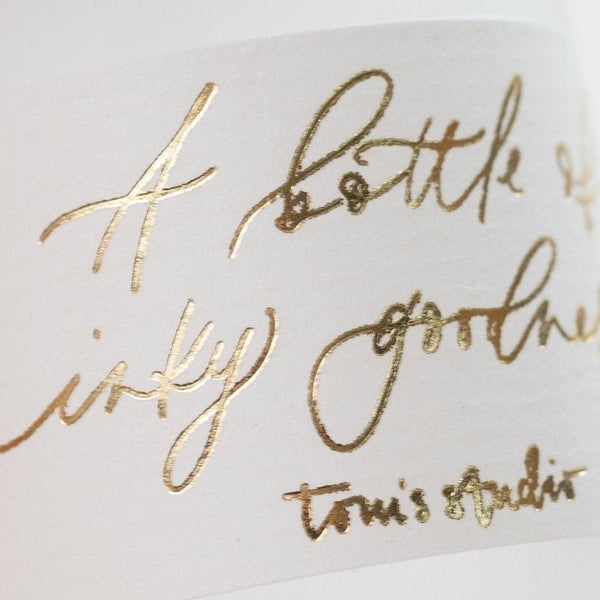 A bottle of
inky goodnes
tom's studio